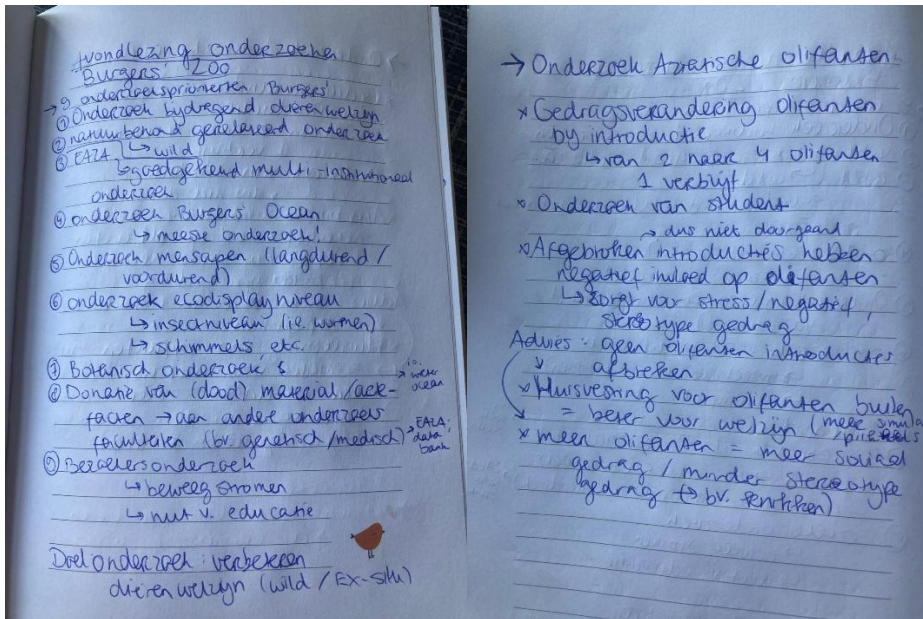 Avondlezing onderzoeken
Burgers' ZOO
→ 9 onderzoeksprioriteiten Burgers'
① Onderzoek bijdragend dierenwelzijn
② natuurbehoud gerelateerd onderzoek
③ EAZA ↳ wild
↳ goedgekeurd multi-institutioneel
onderzoek
④ onderzoek Burgers' Ocean
↳ meeste onderzoek!
⑤ Onderzoek mensapen (langdurend /
voordurend)
⑥ onderzoek ecodisplay niveau
↳ insectniveau (i.e. wormen)
↳ schimmels, etc.
⑦ Botanisch onderzoek
⑧ Donatie van (dood) material /
→ aan andere onderzoeks
faculteiten (bv. genetisch / medisch)
→ EAZA:
data
bank
ocean
⑨ Bezoekersonderzoek
↳ beweegstromen
↳ nut v. educatie
Doel onderzoek: verbeteren
dierenwelzijn (wild / Ex-situ)
→ Onderzoek Aziatische olifanten
* Gedragsverandering olifanten
by introductie
↳ van 2 naar 4 olifanten
1 verblijf
* Onderzoek van student
→ dus niet doorgaand
* Afgebroken introducties hebben
negatief invloed op olifanten
↳ zorgt voor stress / negatief,
stereotype gedrag
Advies: geen olifanten introducties
afbreken
* Huisvesting voor olifanten buiten
= beter voor welzijn (meer
* meer olifanten = meer sociaal
gedrag / minder stereotype
gedrag (→ bv.